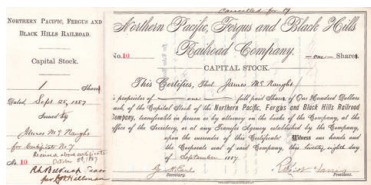 NORTHERN PACIFIC, FERGUS AND
BLACK HILLS RAILROAD.
Capital Stock.
1 Share
Dated Sept. 28, 1887
Issued to
James McNaught
for Certificate No. 7
No. 10
Cancelled
Northern Pacific, Fergus and Black Hills
Railroad Company.
No. 10
one Shares
CAPITAL STOCK.
This Certifies, That James McNaught
is proprietor of one full paid Shares of One Hundred Dollars
each of the Capital Stock of the Northern Pacific, Fergus and Black Hills Railroad
Company, transferable in person or by attorney on the books of the Company, at the
Office of the Secretary, or at any Transfer Agency established by the Company,
upon the surrender of this Certificate. Witness our hands and
the Corporate seal of said Company, this twenty eighth day
of September 1887.
Secretary.
President.